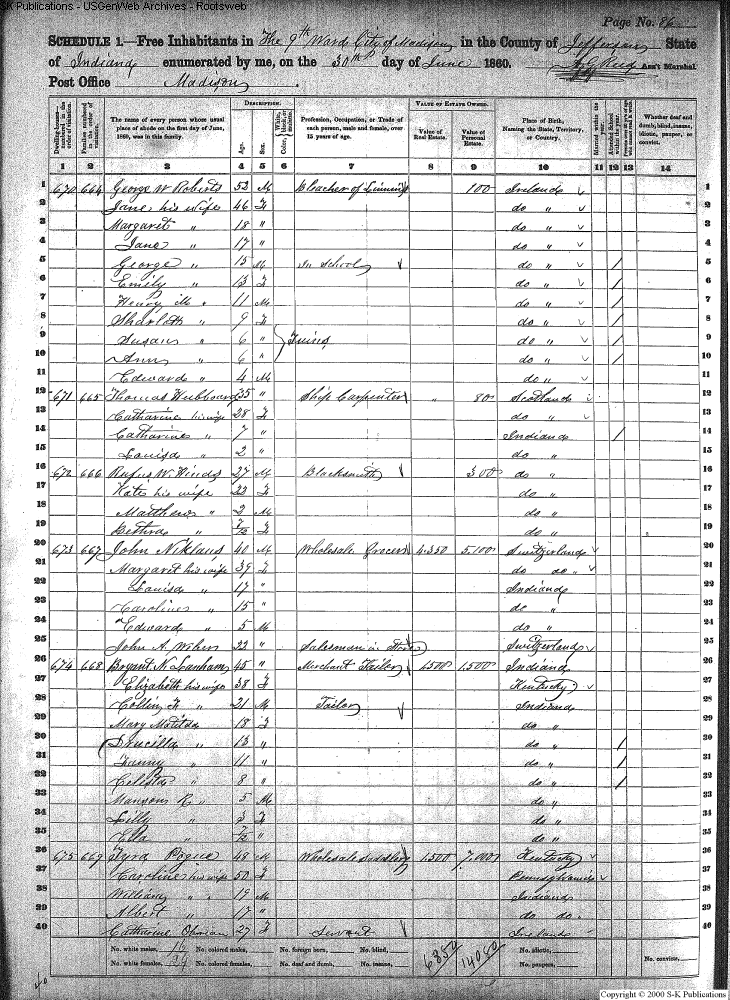 S-K Publications - USGenWeb Archives - Rootsweb
Page No. 86
SCHEDULE 1.—Free Inhabitants in The 9th Ward City of Madison in the County of Jefferson State
of Indiana enumerated by me, on the 30th day of June 1860. Ass't Marshal
Post Office Madison.
DESCRIPTION. VALUE OF ESTATE OWNED.
The name of every person whose usual place of abode on the first day of June, 1860, was in this family. Age. Sex. Color, White, black, or mulatto. Profession, Occupation, or Trade of each person, male and female, over 15 years of age. Value of Real Estate. Value of Personal Estate. Place of Birth, Naming the State, Territory, or Country. Married within the year. Attended School within the year. Whether deaf and dumb, blind, insane, idiotic, pauper, or convict.
1 2 3 4 5 6 7 8 9 10 11 12 13 14
1 670 664 George W Roberts 52 M Bleacher of 100 Ireland 1
2 Jane his wife 46 F do " 2
3 Margaret " 18 " do " 3
4 Jane " 17 " do " 4
5 George " 15 M In School do " / 5
6 Emily " 13 F do " / 6
7 Henry M " 11 M do " / 7
8 Sharlott " 9 F do " / 8
9 Susan " 6 " Twins do " / 9
10 Ann " 6 " do " / 10
11 Edward " 4 M do " 11
12 671 665 Thomas Hubboard 35 " Ship Carpenter " 80 Scotland 12
13 Catharine his wife 28 F do " 13
14 Catharine " 7 " Indiana / 14
15 Louisa " 2 " do " 15
16 672 666 Rufus W. Hinds 27 M Blacksmith 300 do " 16
17 Kate his wife 22 F do " 17
18 Matthew " 2 M do " 18
19 " F do " 19
20 673 667 John Niklaus 40 M Wholesale Grocer 4.350 5.100 Switzerland 20
21 Margaret his wife 39 F do do 21
22 Louisa " 17 " Indiana 22
23 Caroline " 15 " do " 23
24 Edward " 5 M do " 24
25 John A. 22 " Salesman in Store Switzerland 25
26 674 668 Bryant N. Lanham 45 " Merchant Tailor 1.500 Indiana 26
27 Elizabeth his wife 38 F Kentucky 27
28 Collin " 21 M Tailor Indiana 28
29 Mary Matilda 18 F do " 29
30 Drucilla " 13 " do " / 30
31 Fanny " 11 " do " / 31
32 Celesta " 8 " do " / 32
33 R. " 5 M do " 33
34 Lilly " 3 F do " 34
35 Ella " " do " 35
36 675 669 Tyra Pogue 48 M Wholesale Saddlery 1.500 7.000 Kentucky 36
37 Caroline his wife 50 F Pennsylvania 37
38 William " 19 M Indiana 38
39 Albert " 17 " do do 39
40 Catharine 27 F Servant Ireland 40
No. white males, 16 No. colored males, No. foreign born, No. blind, 6850 14080 No. idiotic, No. convicts,
No. white females, 24 No. colored females, No. deaf and dumb, No. insane, No. paupers,
Copyright © 2000 S-K Publications